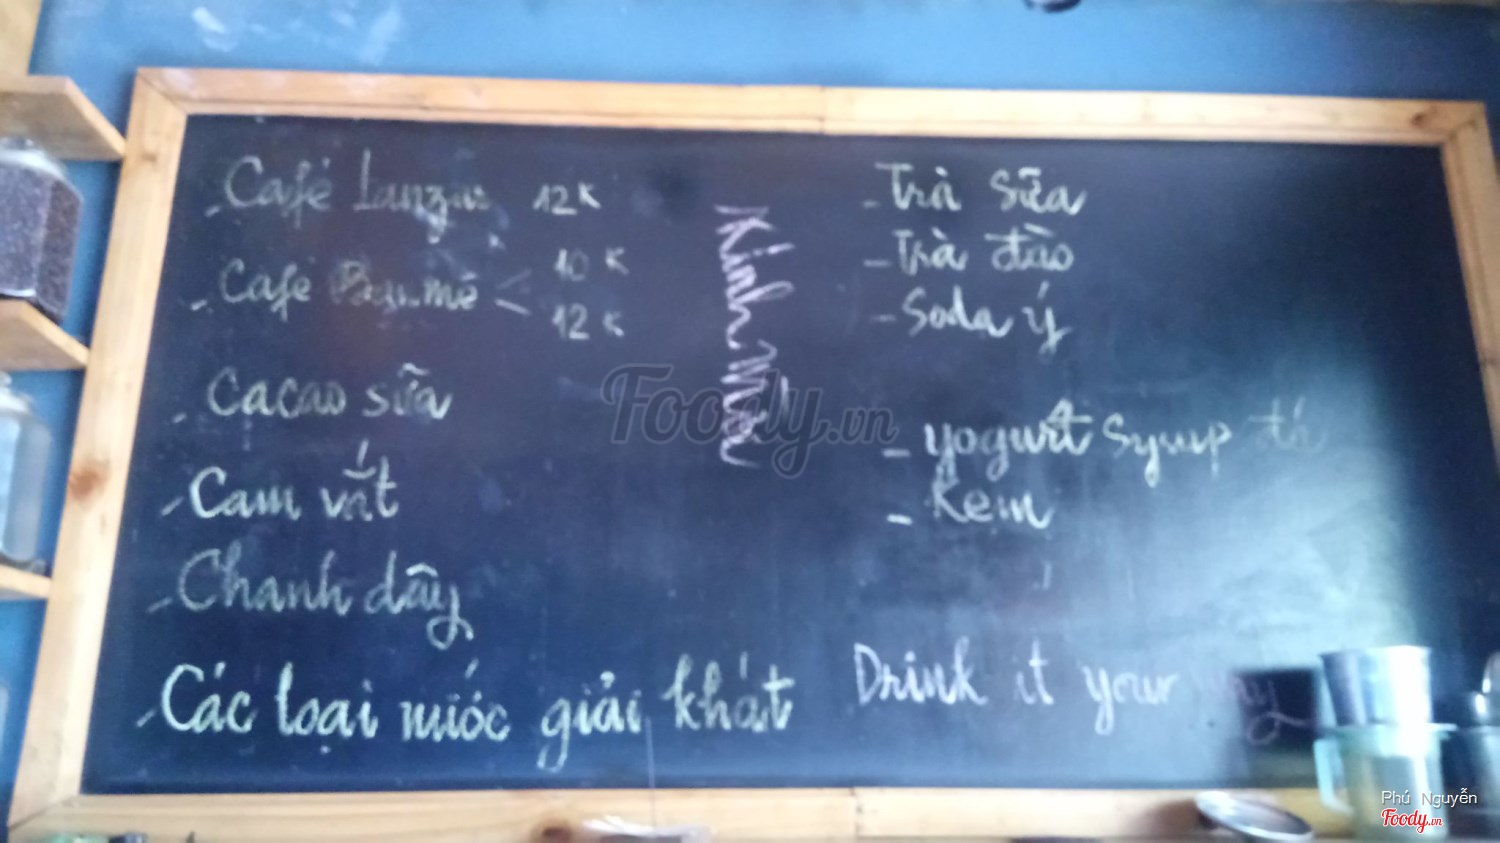 - Café 12K
- Café Ban mê < 10K
12K
- Cacao sữa
- Cam vắt
- Chanh dây
- Các loại nước giải khát
Kính Mời
- Trà sữa
- Trà đào
- Soda ý
- yogurt Syrup
- Kem
Drink it your way
Foody.vn
Phú Nguyễn
Foody.vn